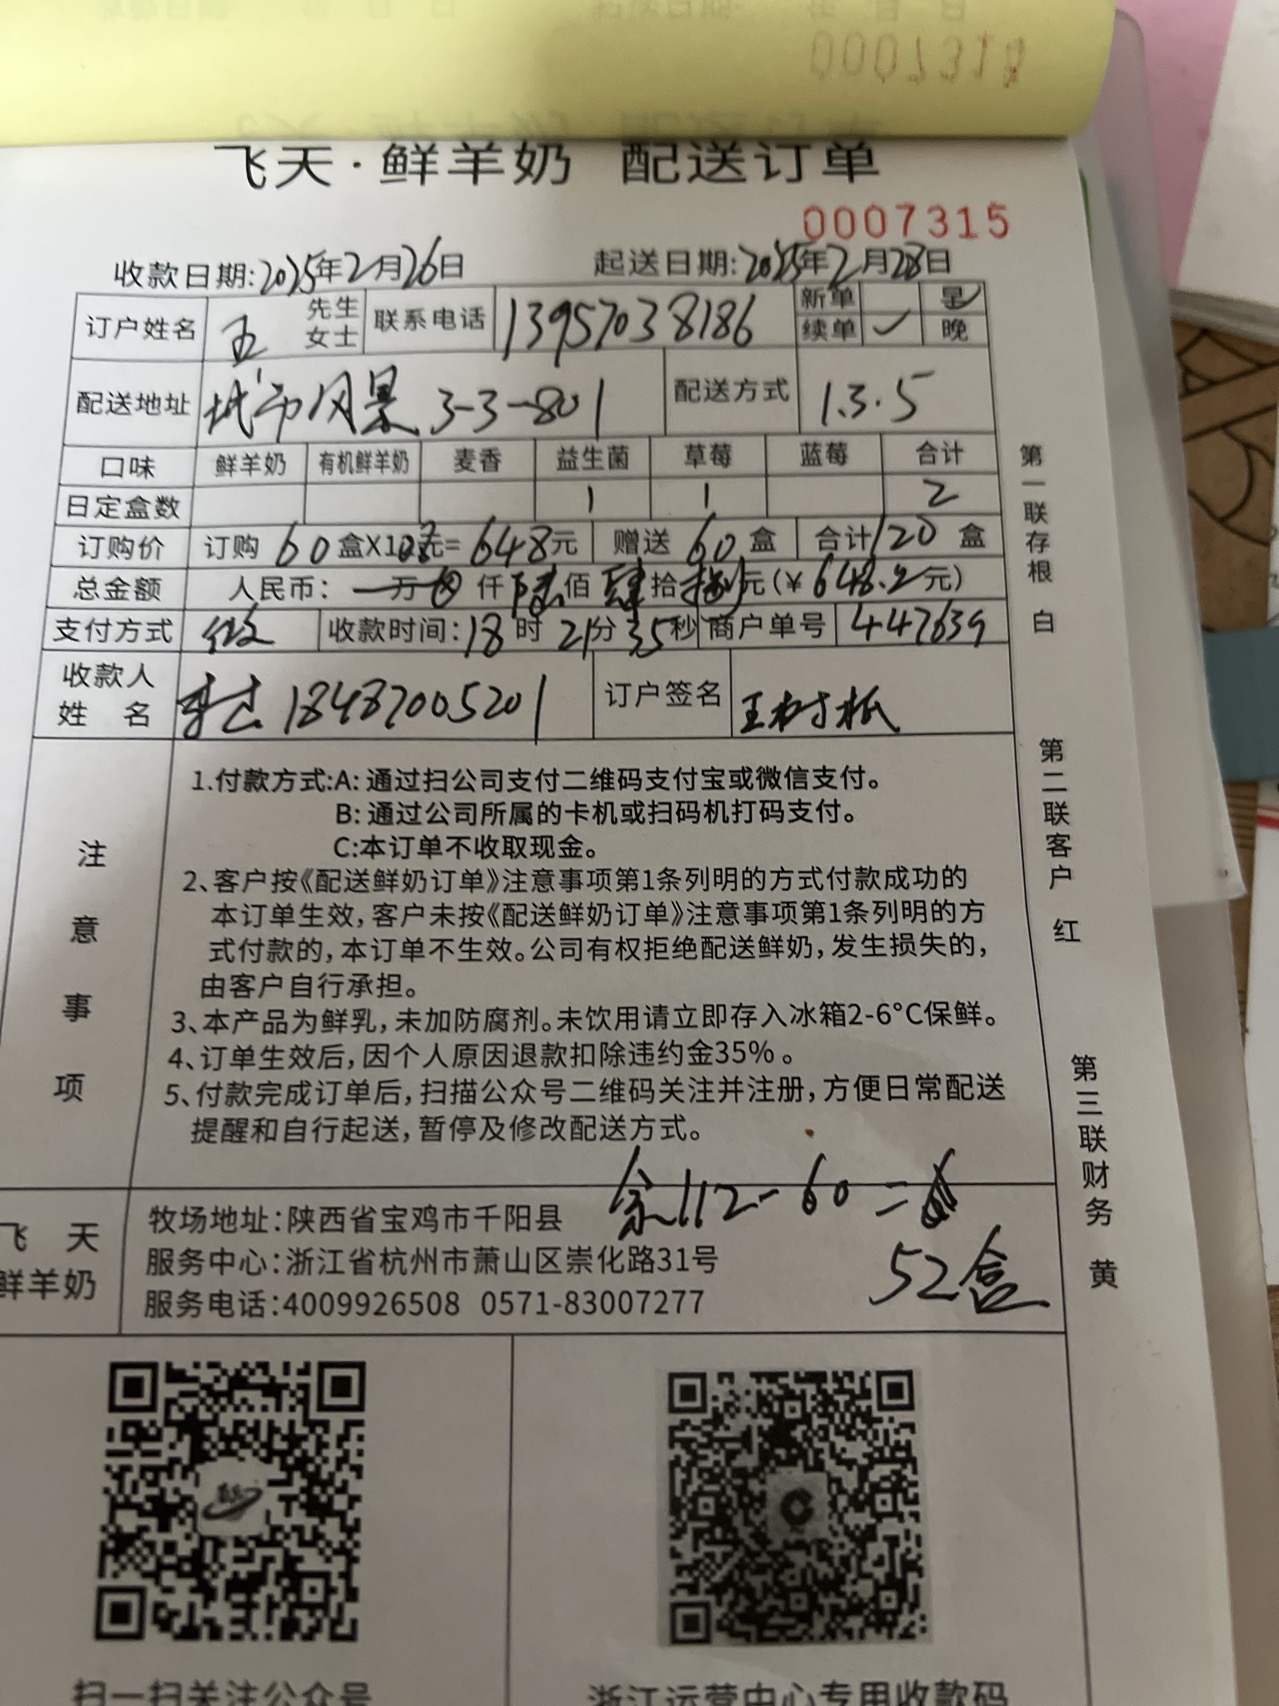 0007318
飞天·鲜羊奶 配送订单
0007315
收款日期:2025年2月26日 起送日期:2025年2月28日
订户姓名 王 先生 女士 联系电话 13957038186 新单 早
续单 ✓ 晚
配送地址 城市风景 3-3-801 配送方式 1.3.5
口味 鲜羊奶 有机鲜羊奶 麦香 益生菌 草莓 蓝莓 合计
日定盒数 1 1 2
订购价 订购 60 盒X10.8元= 648元 赠送 60 盒 合计120 盒
总金额 人民币: 万 仟 陆佰 肆拾 捌元(¥648.2元)
支付方式 收款时间:18时21分35秒 商户单号 447639
收款人姓名 李 18487005201 订户签名 王树
注意事项
1.付款方式:A:通过扫公司支付二维码支付宝或微信支付。
B:通过公司所属的卡机或扫码机打码支付。
C:本订单不收取现金。
2、客户按《配送鲜奶订单》注意事项第1条列明的方式付款成功的
本订单生效,客户未按《配送鲜奶订单》注意事项第1条列明的方
式付款的,本订单不生效。公司有权拒绝配送鲜奶,发生损失的,
由客户自行承担。
3、本产品为鲜乳,未加防腐剂。未饮用请立即存入冰箱2-6°C保鲜。
4、订单生效后,因个人原因退款扣除违约金35%。
5、付款完成订单后,扫描公众号二维码关注并注册,方便日常配送
提醒和自行起送,暂停及修改配送方式。
余112-60=
52盒
飞天
鲜羊奶
牧场地址:陕西省宝鸡市千阳县
服务中心:浙江省杭州市萧山区崇化路31号
服务电话:4009926508 0571-83007277
扫一扫关注公众号
浙江运营中心专用收款码
第一联存根 白
第二联客户 红
第三联财务 黄